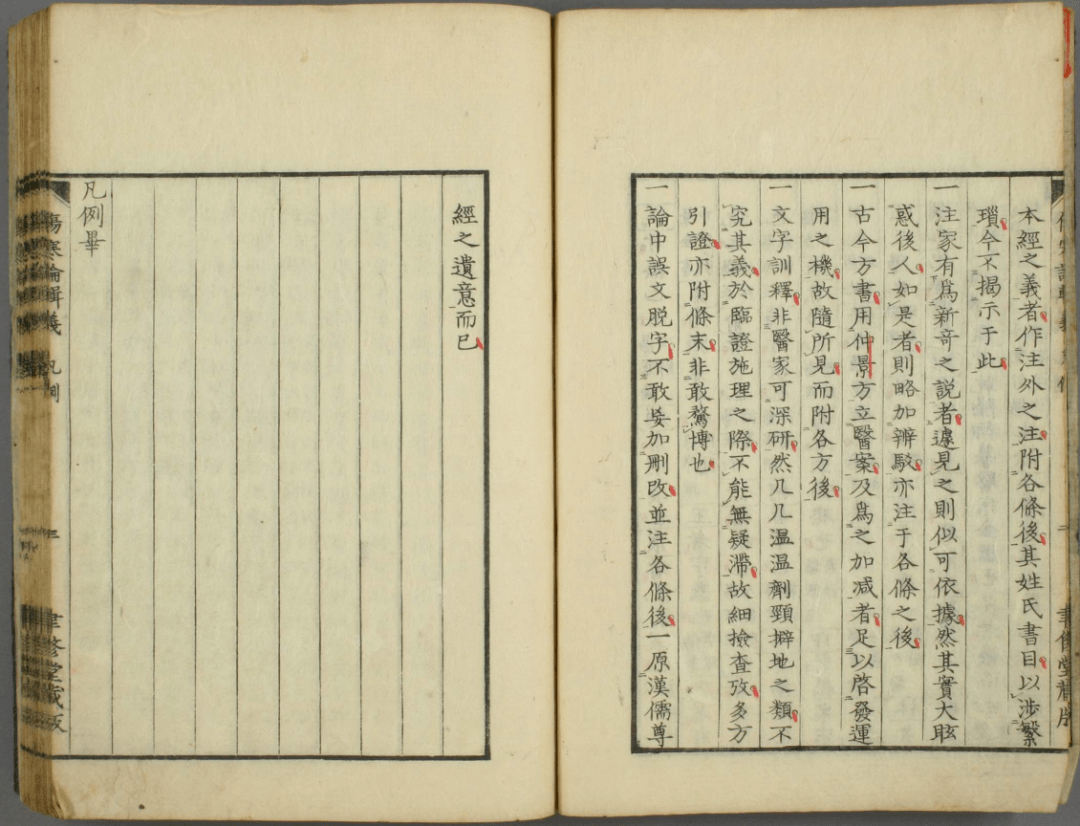 本經之義者作注外之注附各條後其姓氏書目以涉繁
瑣今不揭示于此
一注家有爲新奇之説者遽見之則似可依據然其實大眩
惑後人如是者則略加辨駁亦注于各條之後
一古今方書用仲景方立醫案及爲之加减者足以啓發運
用之機故隨所見而附各方後
一文字訓釋非醫家可深研然几几温温劑頸擗地之類不
究其義於臨證施理之際不能無疑滯故細撿查攷多方
引證亦附條末非敢騖博也
一論中誤文脱字不敢妄加刪改並注各條後一原漢儒尊
經之遺意而已
凡例畢
傷寒論輯義 凡例 三 聿修堂藏版